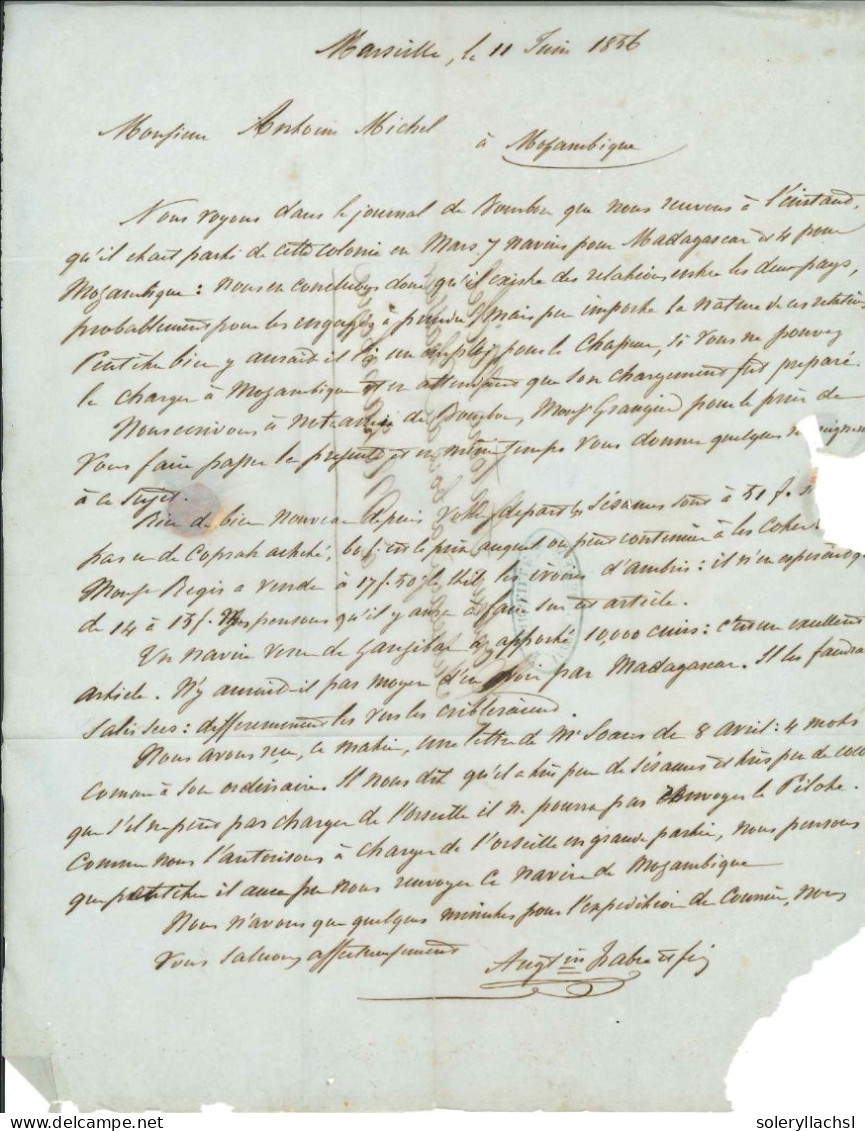 Marseille, le 11 Juin 1856
Monsieur Antoine Michel
à Mozambique
Nous voyons dans le journal de Bourbon que nous recevons à l'instant,
qu'il était parti de cette colonie en Mars 7 navires pour Madagascar et 4 pour
Mozambique : nous en concluons donc qu'il existe des relations entre les deux pays,
probablement pour les engagés à prendre, mais peu importe la nature de ces relations
Peut être bien y aurait il là un emploi pour le Chapeur, si vous ne pouvez
le charger à Mozambique et en attendant que son chargement fut préparé.
Nous écrivons à notre ami de Bourbon, Monsr Grangier pour le prier de
vous faire passer la présente et en même temps vous donner quelques
à ce sujet.
Rien de bien nouveau depuis votre départ les sésames sont à 51 f.
pas un de Coprah acheté, 60 f. est le prix auquel on peut
Monsr Regis a vendu à 17 f. 50 les ivoires d'ambris : il n'en
de 14 à 15 f. Nous pensons qu'il y aura à faire sur cet article.
Un navire venu de Zanzibar a apporté 10,000 cuirs : c'est un excellent
article. N'y aurait-il pas moyen d'en avoir par Madagascar. Il les faudrait
salés secs : différemment les vers les cribleraient.
Nous avons reçu, ce matin, une lettre de Mr Soares du 8 avril : 4 mots
comme à son ordinaire. Il nous dit qu'il a très peu de sésames et très peu de
que s'il ne peut pas charger de l'orseille il ne pourra pas envoyer le Pilote.
Comme nous l'autorisons à charger de l'orseille en grande partie, nous pensons
que peut être il aura pu nous renvoyer ce navire de Mozambique
Nous n'avons que quelques minutes pour l'expédition du Courrier, nous
vous saluons affectueusement
Augtin Fabre et fils
soleryllachsl